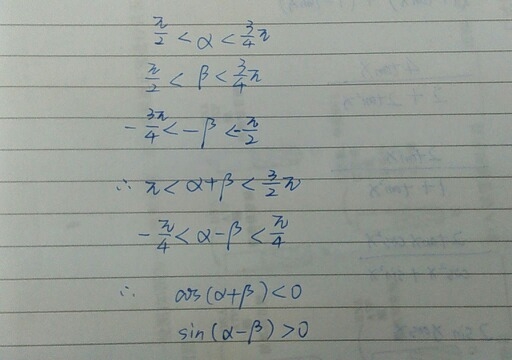 π/2 < α < 3/4 π
π/2 < β < 3/4 π
- 3π/4 < -β < -π/2
∴ π < α+β < 3/2 π
- π/4 < α-β < π/4
∴ cos(α+β) < 0
sin(α-β) > 0